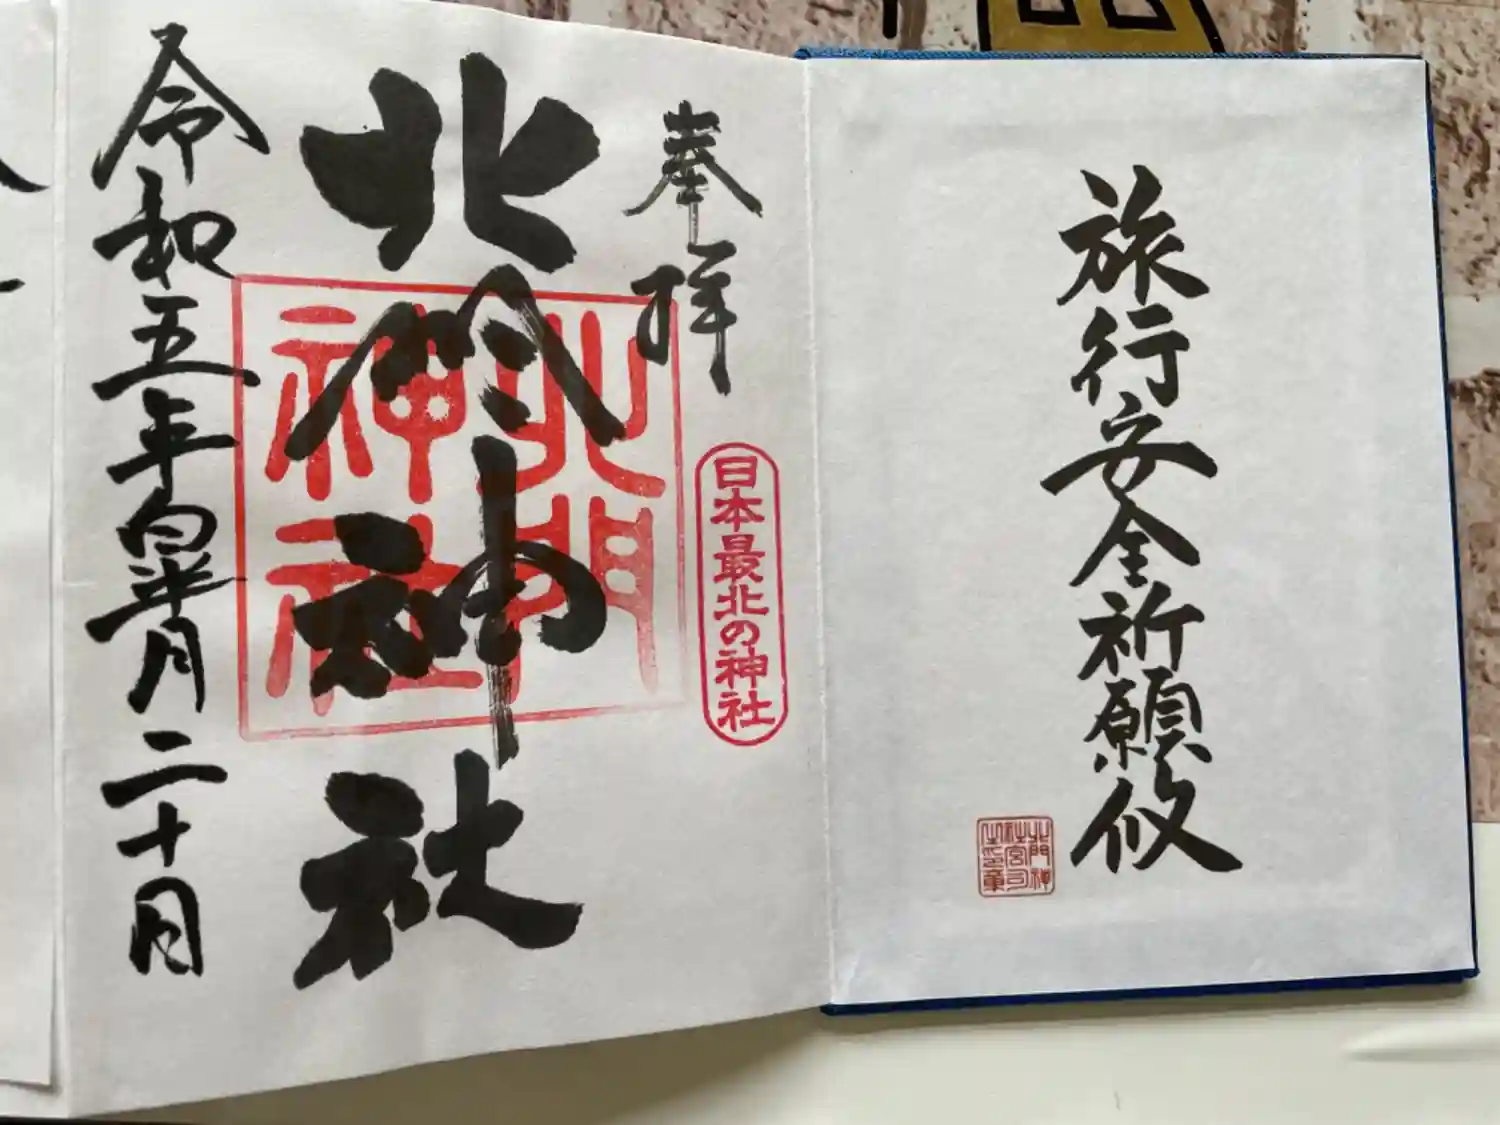 旅行安全祈願攸
北門神
社宮司
之印章
奉拝
日本最北の神社
北門神社
北門
神社
令和五年皐月二十日